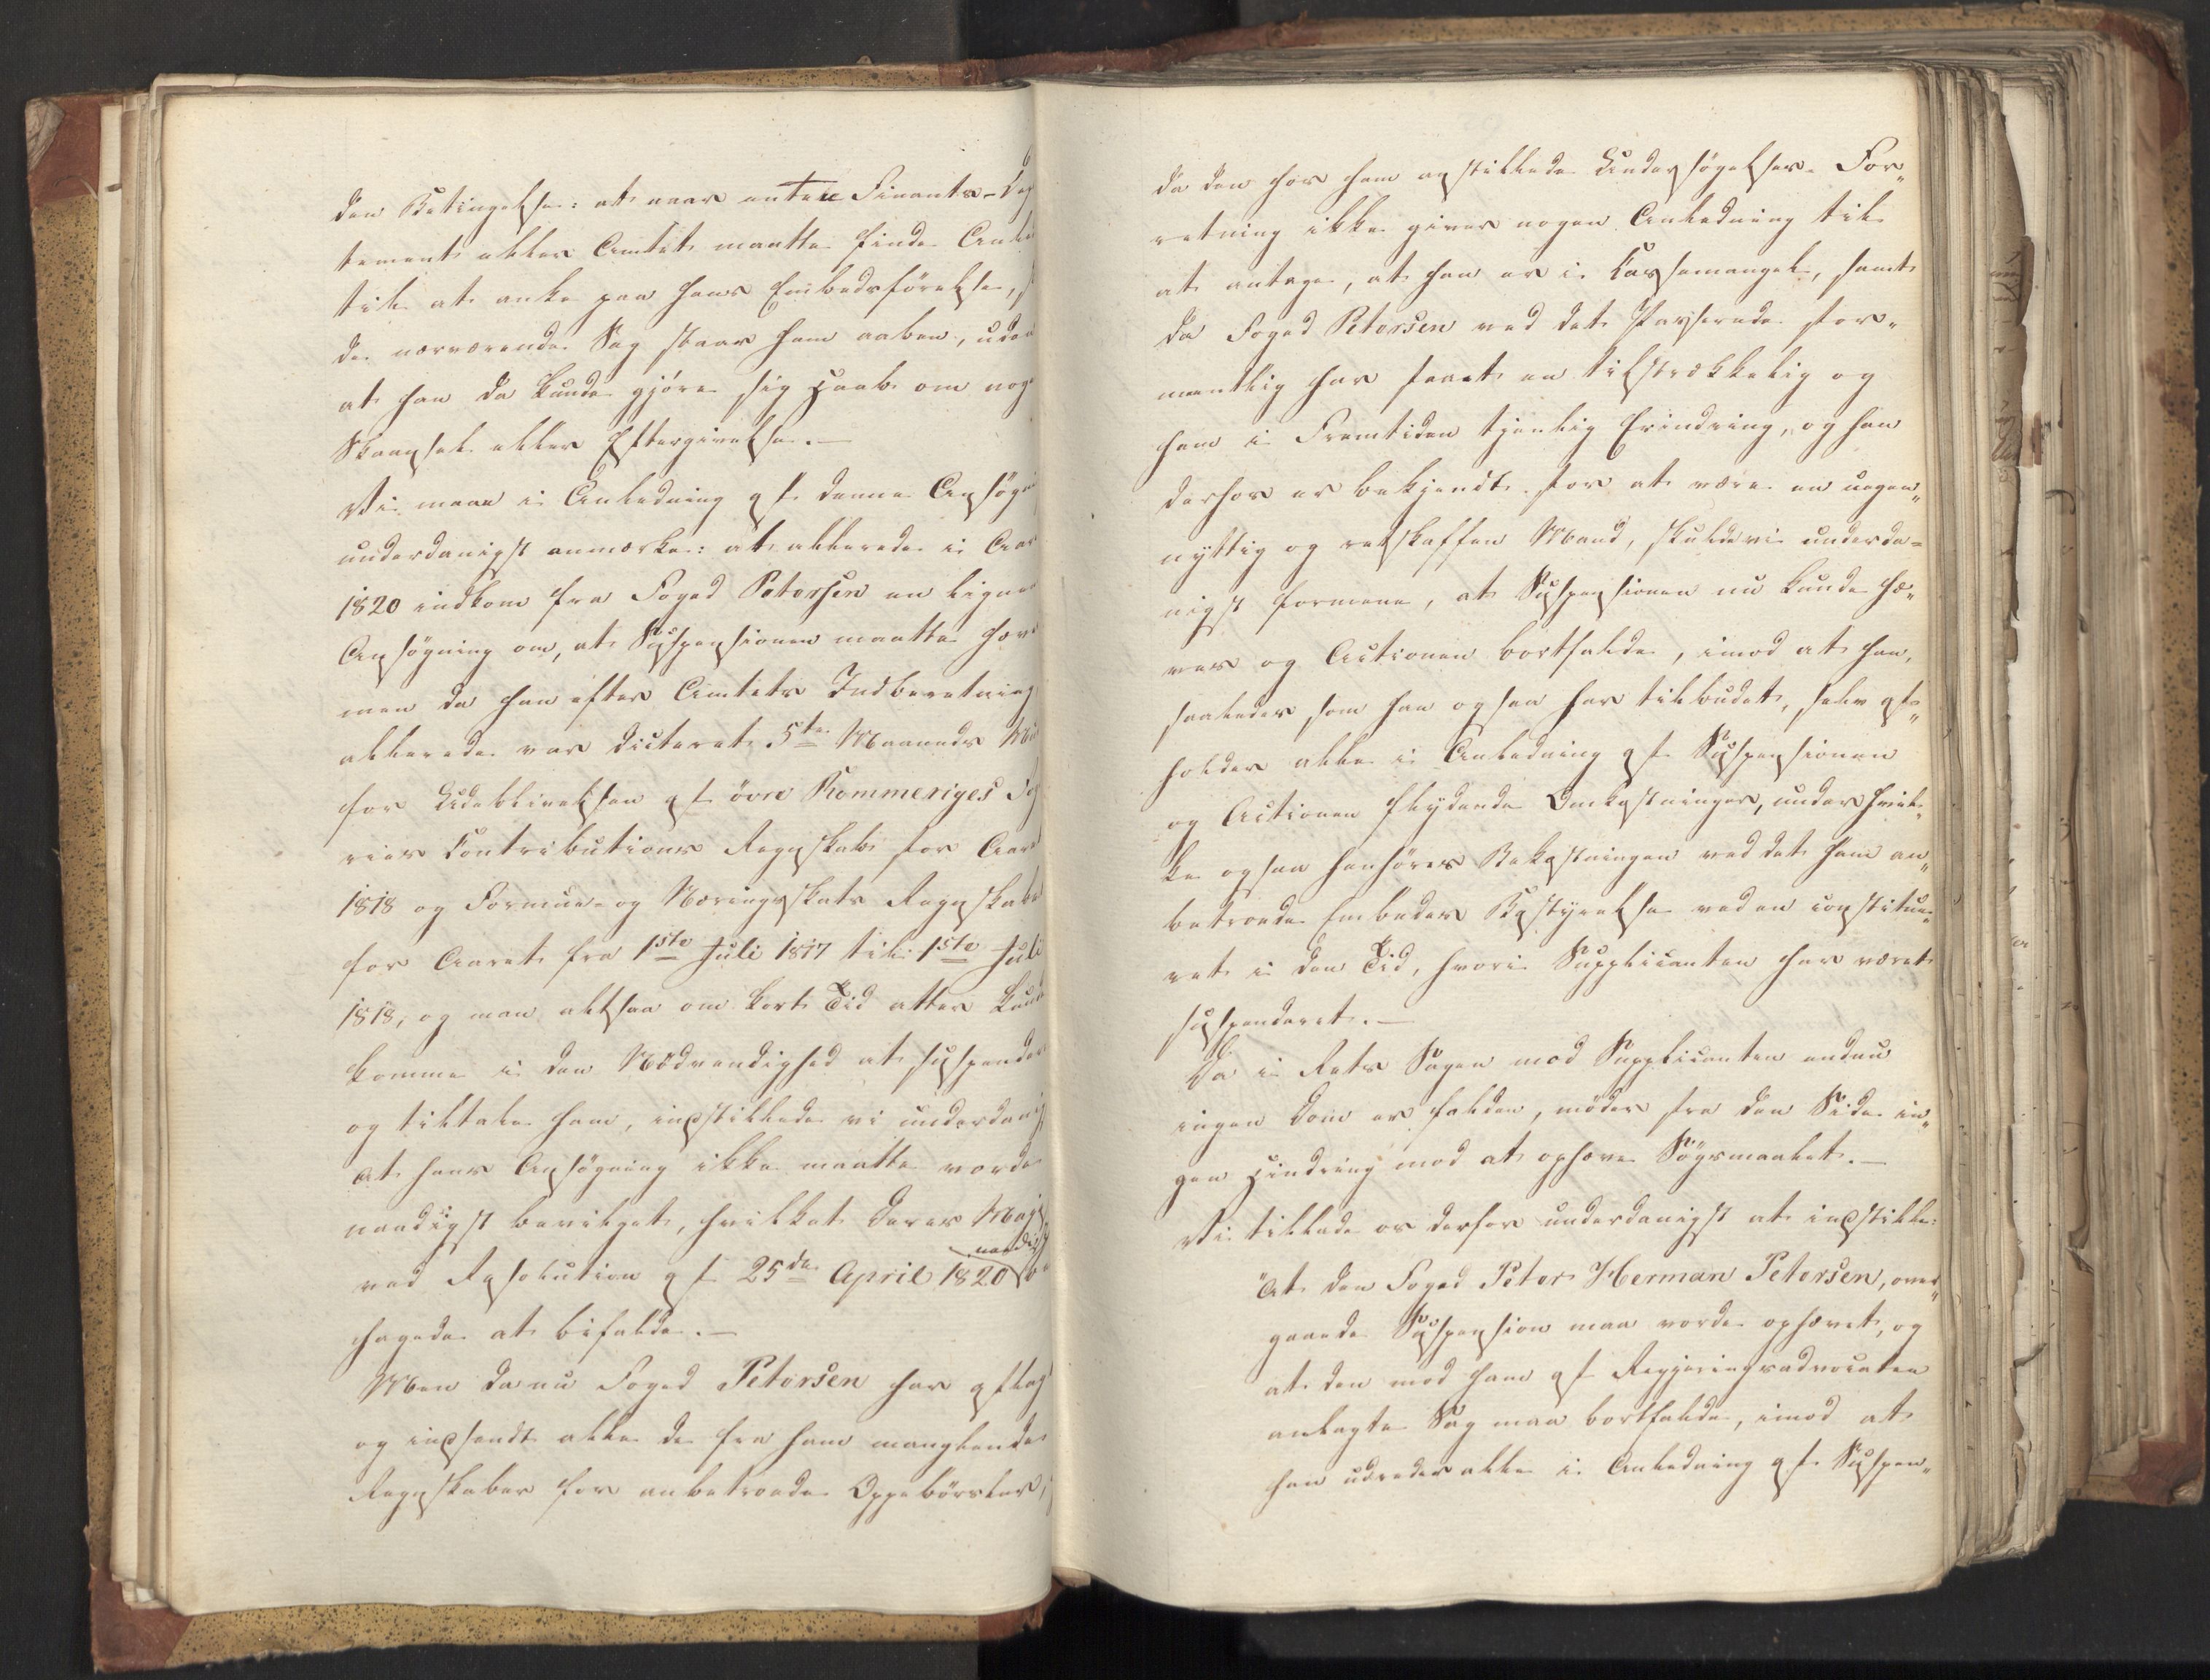 den Betingelse: at naar enten Finants-Dep
tement eller Amtet maatte finde Anled
til at anke paa hans Embedsførelse,
da nærværende Sag staar ham aaben, uden
at han da kunde gjøre sig Haab om nog
Skaansel eller Eftergivelse.—
Vi maae i Anledning af denne Ansøgn
underdanigst anmærke: at allerede i Aar
1820 indkom fra Foged Petersen en lignen
Ansøgning om, at Suspensionen maatte hæve
men da han efter Amtets Indberetning
allerede var dicteret 5te Maaneds Mul
for Udeblivelsen af övre Rommeriges Fog
ries Contributions Regnskab for Aaret
1818 og Formue- og Næringsskats Regnskabet
for Aaret fra 1ste Juli 1817 til 1ste Juli
1818, og man altsaa om kort Tid atter kund
komme i den Nødvendighed at suspendere
og tiltale ham, indstillede vi underdanig
at hans Ansøgning ikke maatte vorde
naadigst bevilget, hvilket Deres Maj
ved Resolution af 25de April 1820 naadigst be
hagede at bifalde.—
Men da nu Foged Petersen har aflagt
og indsendt alle de fra ham manglende
Regnskaber for anbetroede Oppebørsler,
da den hos ham anstillede Undersøgelses-For„
retning ikke giver nogen Anledning til
at antage, at han er i Kassemangel, samt
da Foged Petersen ved det Passerede for„
mentlig har faaet en tilstrækkelig og
ham i Fremtiden tjenlig Erindring, og han
derhos er bekjendt for at være en uegen„
nyttig og retskaffen Mand, skulde vi underda=
nigst formene, at Suspensionen nu kunde hæ„
ves og Actionen bortfalde, imod at han,
saaledes som han ogsaa har tilbudet, selv af„
holder alle i Anledning af Suspensionen
og Actionen flydende Omkostninger, under hvil„
ke ogsaa henhører Bekostningen ved det ham an„
betroede Embedes Bestyrelse ved en constitue„
ret i den Tid, hvori Supplicanten har været
suspenderet.—
Da i Rets Sagen mod Supplicanten endnu
ingen Dom er falden, møder fra den Side in„
gen Hindring mod at ophæve Søgsmaalet.—
Vi tillade os derfor underdanigst at indstille:
"At den Foged Peter Herman Petersen, over„
gaaede Suspension maa vorde ophævet, og
at den mod ham af Regjeringsadvocaten
anlagte Sag maa bortfalde, imod at
han udreder alle i Anledning af Suspen„